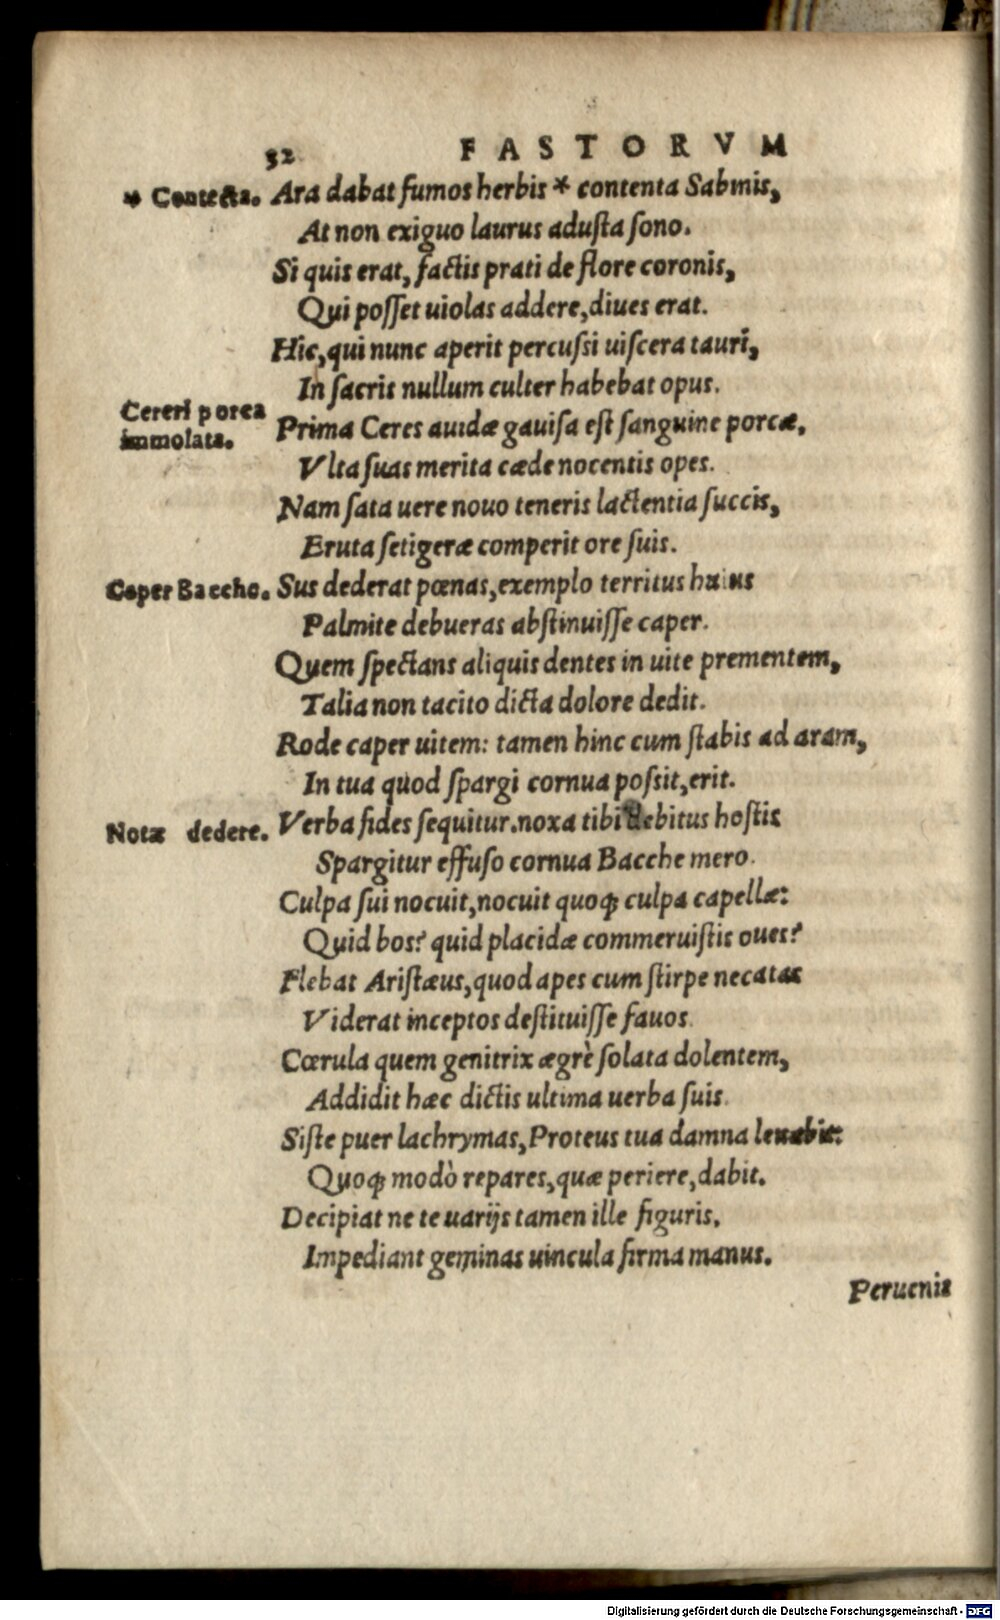 32 FASTORVM
* Contecta. Ara dabat fumos herbis * contenta Sabinis,
At non exiguo laurus adusta sono.
Si quis erat, factis prati de flore coronis,
Qui posset uiolas addere, diues erat.
Hic, qui nunc aperit percussi uiscera tauri,
In sacris nullum culter habebat opus.
Cereri porca
immolata.
Prima Ceres auidæ gauisa est sanguine porcæ,
Vlta suas merita cæde nocentis opes.
Nam sata uere nouo teneris lactentia succis,
Eruta setigeræ comperit ore suis.
Caper Baccho. Sus dederat pœnas, exemplo territus huius
Palmite debueras abstinuisse caper.
Quem spectans aliquis dentes in uite prementem,
Talia non tacito dicta dolore dedit.
Rode caper uitem: tamen hinc cum stabis ad aram,
In tua quod spargi cornua possit, erit.
Notæ dedere. Verba fides sequitur. noxa tibi debitus hostis
Spargitur effuso cornua Bacche mero.
Culpa sui nocuit, nocuit quoq; culpa capellæ:
Quid bos? quid placidæ commeruistis oues?
Flebat Aristæus, quod apes cum stirpe necatas
Viderat inceptos destituisse fauos.
Cœrula quem genitrix ægrè solata dolentem,
Addidit hæc dictis ultima uerba suis.
Siste puer lachrymas, Proteus tua damna leuabit:
Quoq; modò repares, quæ periere, dabit.
Decipiat ne te uarijs tamen ille figuris,
Impediant geminas uincula firma manus.
Peruenit
Digitalisierung gefördert durch die Deutsche Forschungsgemeinschaft - DFG